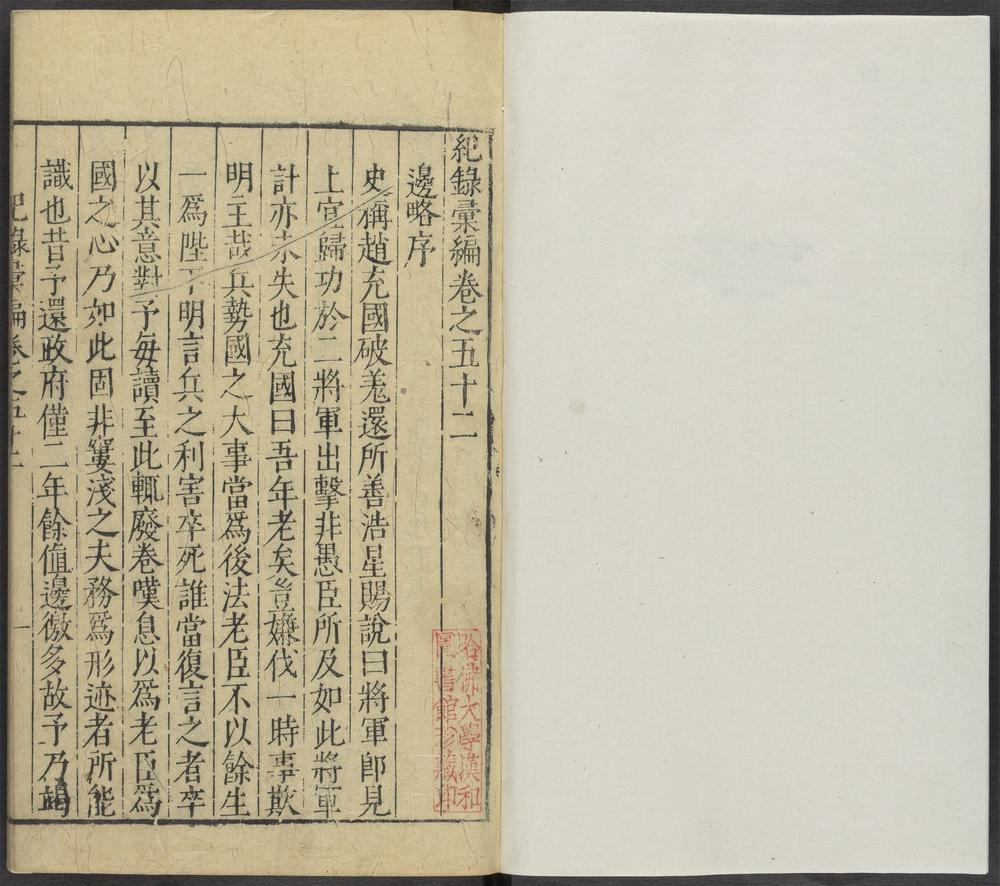 紀錄彙編卷之五十二
邊略序
史稱趙充國破羗還所善浩星賜說曰將軍卽見
上宜歸功於二將軍出擊非愚臣所及如此將軍
計亦未失也充國曰吾年老矣豈嫌伐一時事欺
明主哉兵勢國之大事當爲後法老臣不以餘生
一爲陛下明言兵之利害卒死誰當復言之者卒
以其意對予每讀至此輒廢卷嘆息以爲老臣爲
國之心乃如此固非窶淺之夫務爲形迹者所能
識也昔予還政府僅二年餘値邊徼多故予乃竭
紀錄彙編卷之五十二
一
哈佛大學漢和
圖書館珍藏印